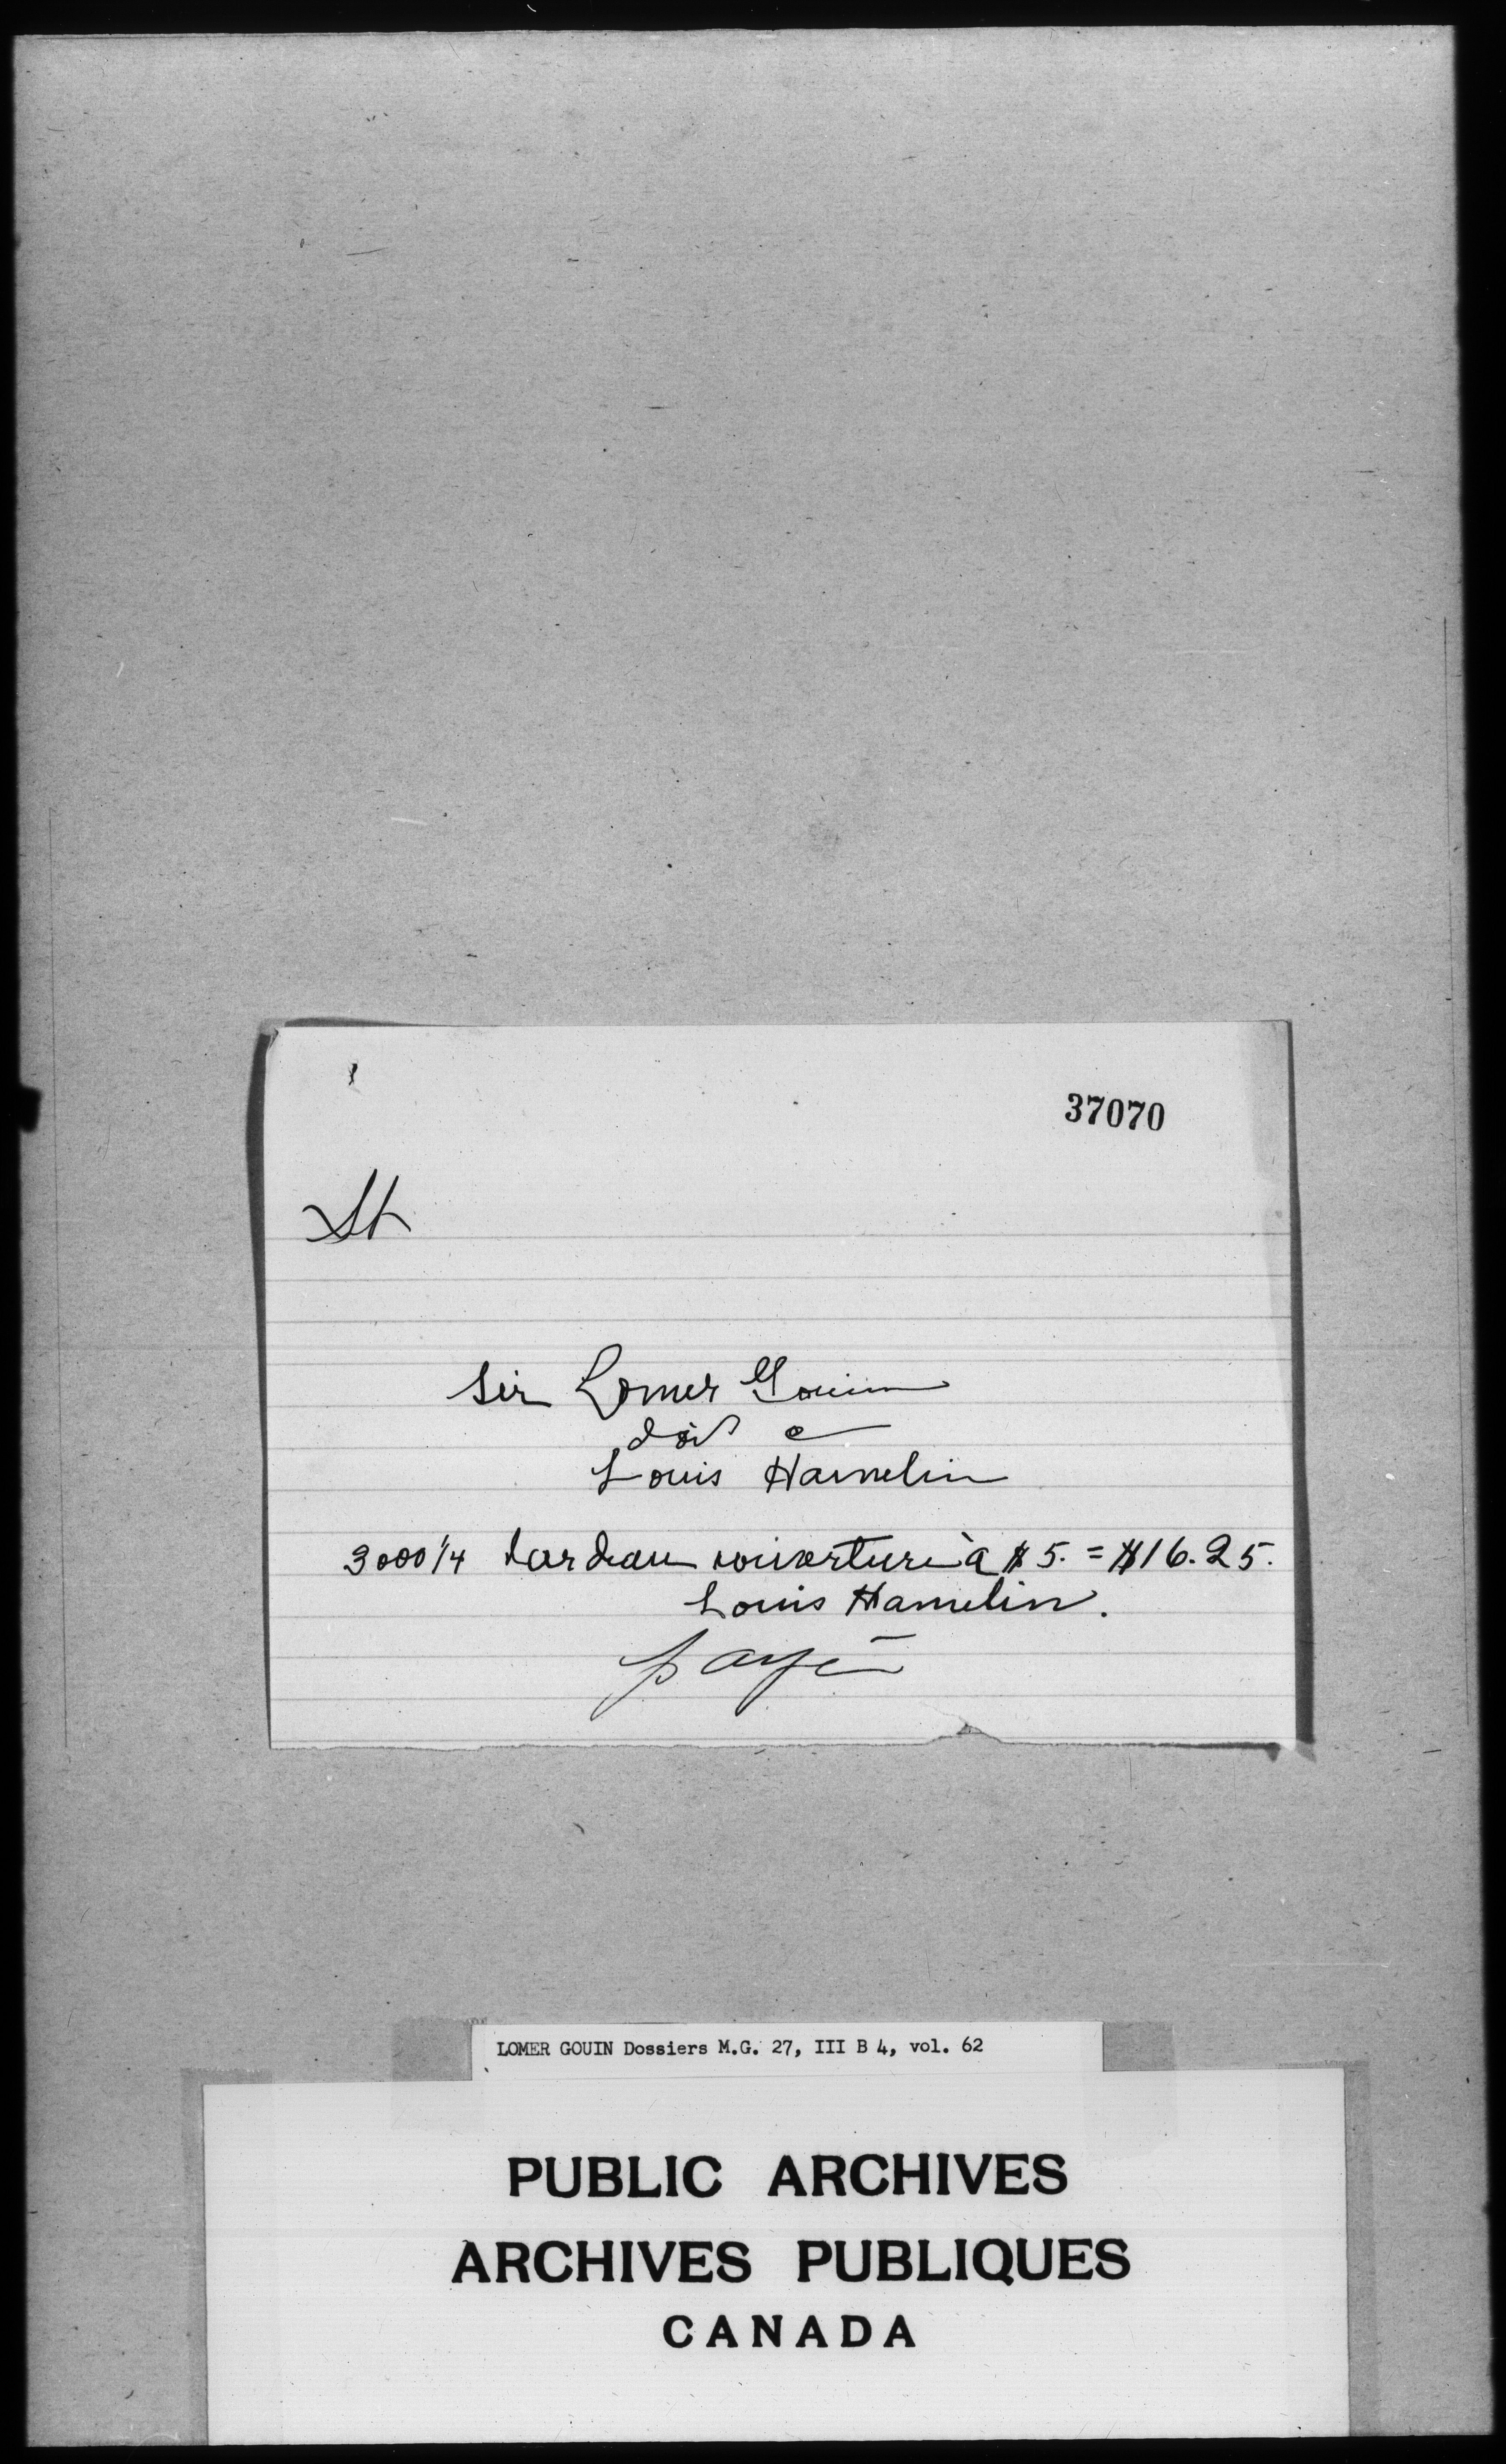 37070
St
Sir Lomer Gouin
doit à
Louis Hamelin
3000 1/4 bardeau couverture à $5. = $16.25.
Louis Hamelin.
payé
LOMER GOUIN Dossiers M.G. 27, III B 4, vol. 62
PUBLIC ARCHIVES
ARCHIVES PUBLIQUES
CANADA